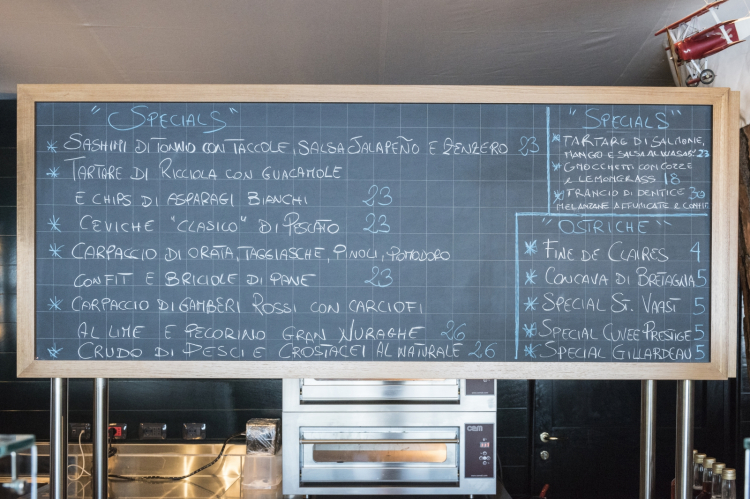 "SPECIALS"
* SASHIMI DI TONNO CON TACCOLE, SALSA JALAPEÑO E ZENZERO 23
* TARTARE DI RICCIOLA CON GUACAMOLE
E CHIPS DI ASPARAGI BIANCHI 23
* CEVICHE "CLASICO" DI PESCATO 23
* CARPACCIO DI ORATA, TAGGIASCHE, PINOLI, POMODORO
CONFIT E BRICIOLE DI PANE 23
* CARPACCIO DI GAMBERI ROSSI CON CARCIOFI
AL LIME E PECORINO GRAN NURAGHE 26
* CRUDO DI PESCI E CROSTACEI AL NATURALE 26
"SPECIALS"
* TARTARE DI SALMONE,
MANGO E SALSA AL WASABI 23
* GNOCCHETTI CON COZZE
E LEMONGRASS 18
* TRANCIO DI DENTICE 30
MELANZANE AFFUMICATE E CONFIT
"OSTRICHE"
* FINE DE CLAIRES 4
* CONCAVA DI BRETAGNA 5
* SPECIAL ST. VAAST 5
* SPECIAL CUVEE PRESTIGE 5
* SPECIAL GILLARDEAU 5
cem